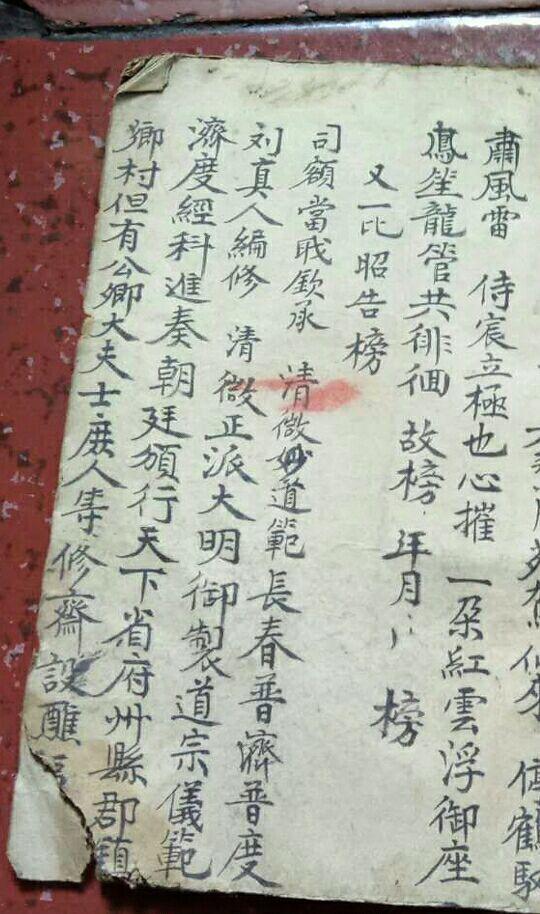 傳鶴駕
肅風雷 侍宸立極也心摧 一朶紅雲浮御座
鳳笙龍管共徘徊 故榜 年月 榜
又一比昭告榜
司額當职欽承 清微妙道範長春普濟普度
刘真人編修 清微正派大明御製道宗儀範
濟度經科進奏朝廷頒行天下省府州縣郡鎮
鄉村但有公卿大夫士庶人等修齋設醮